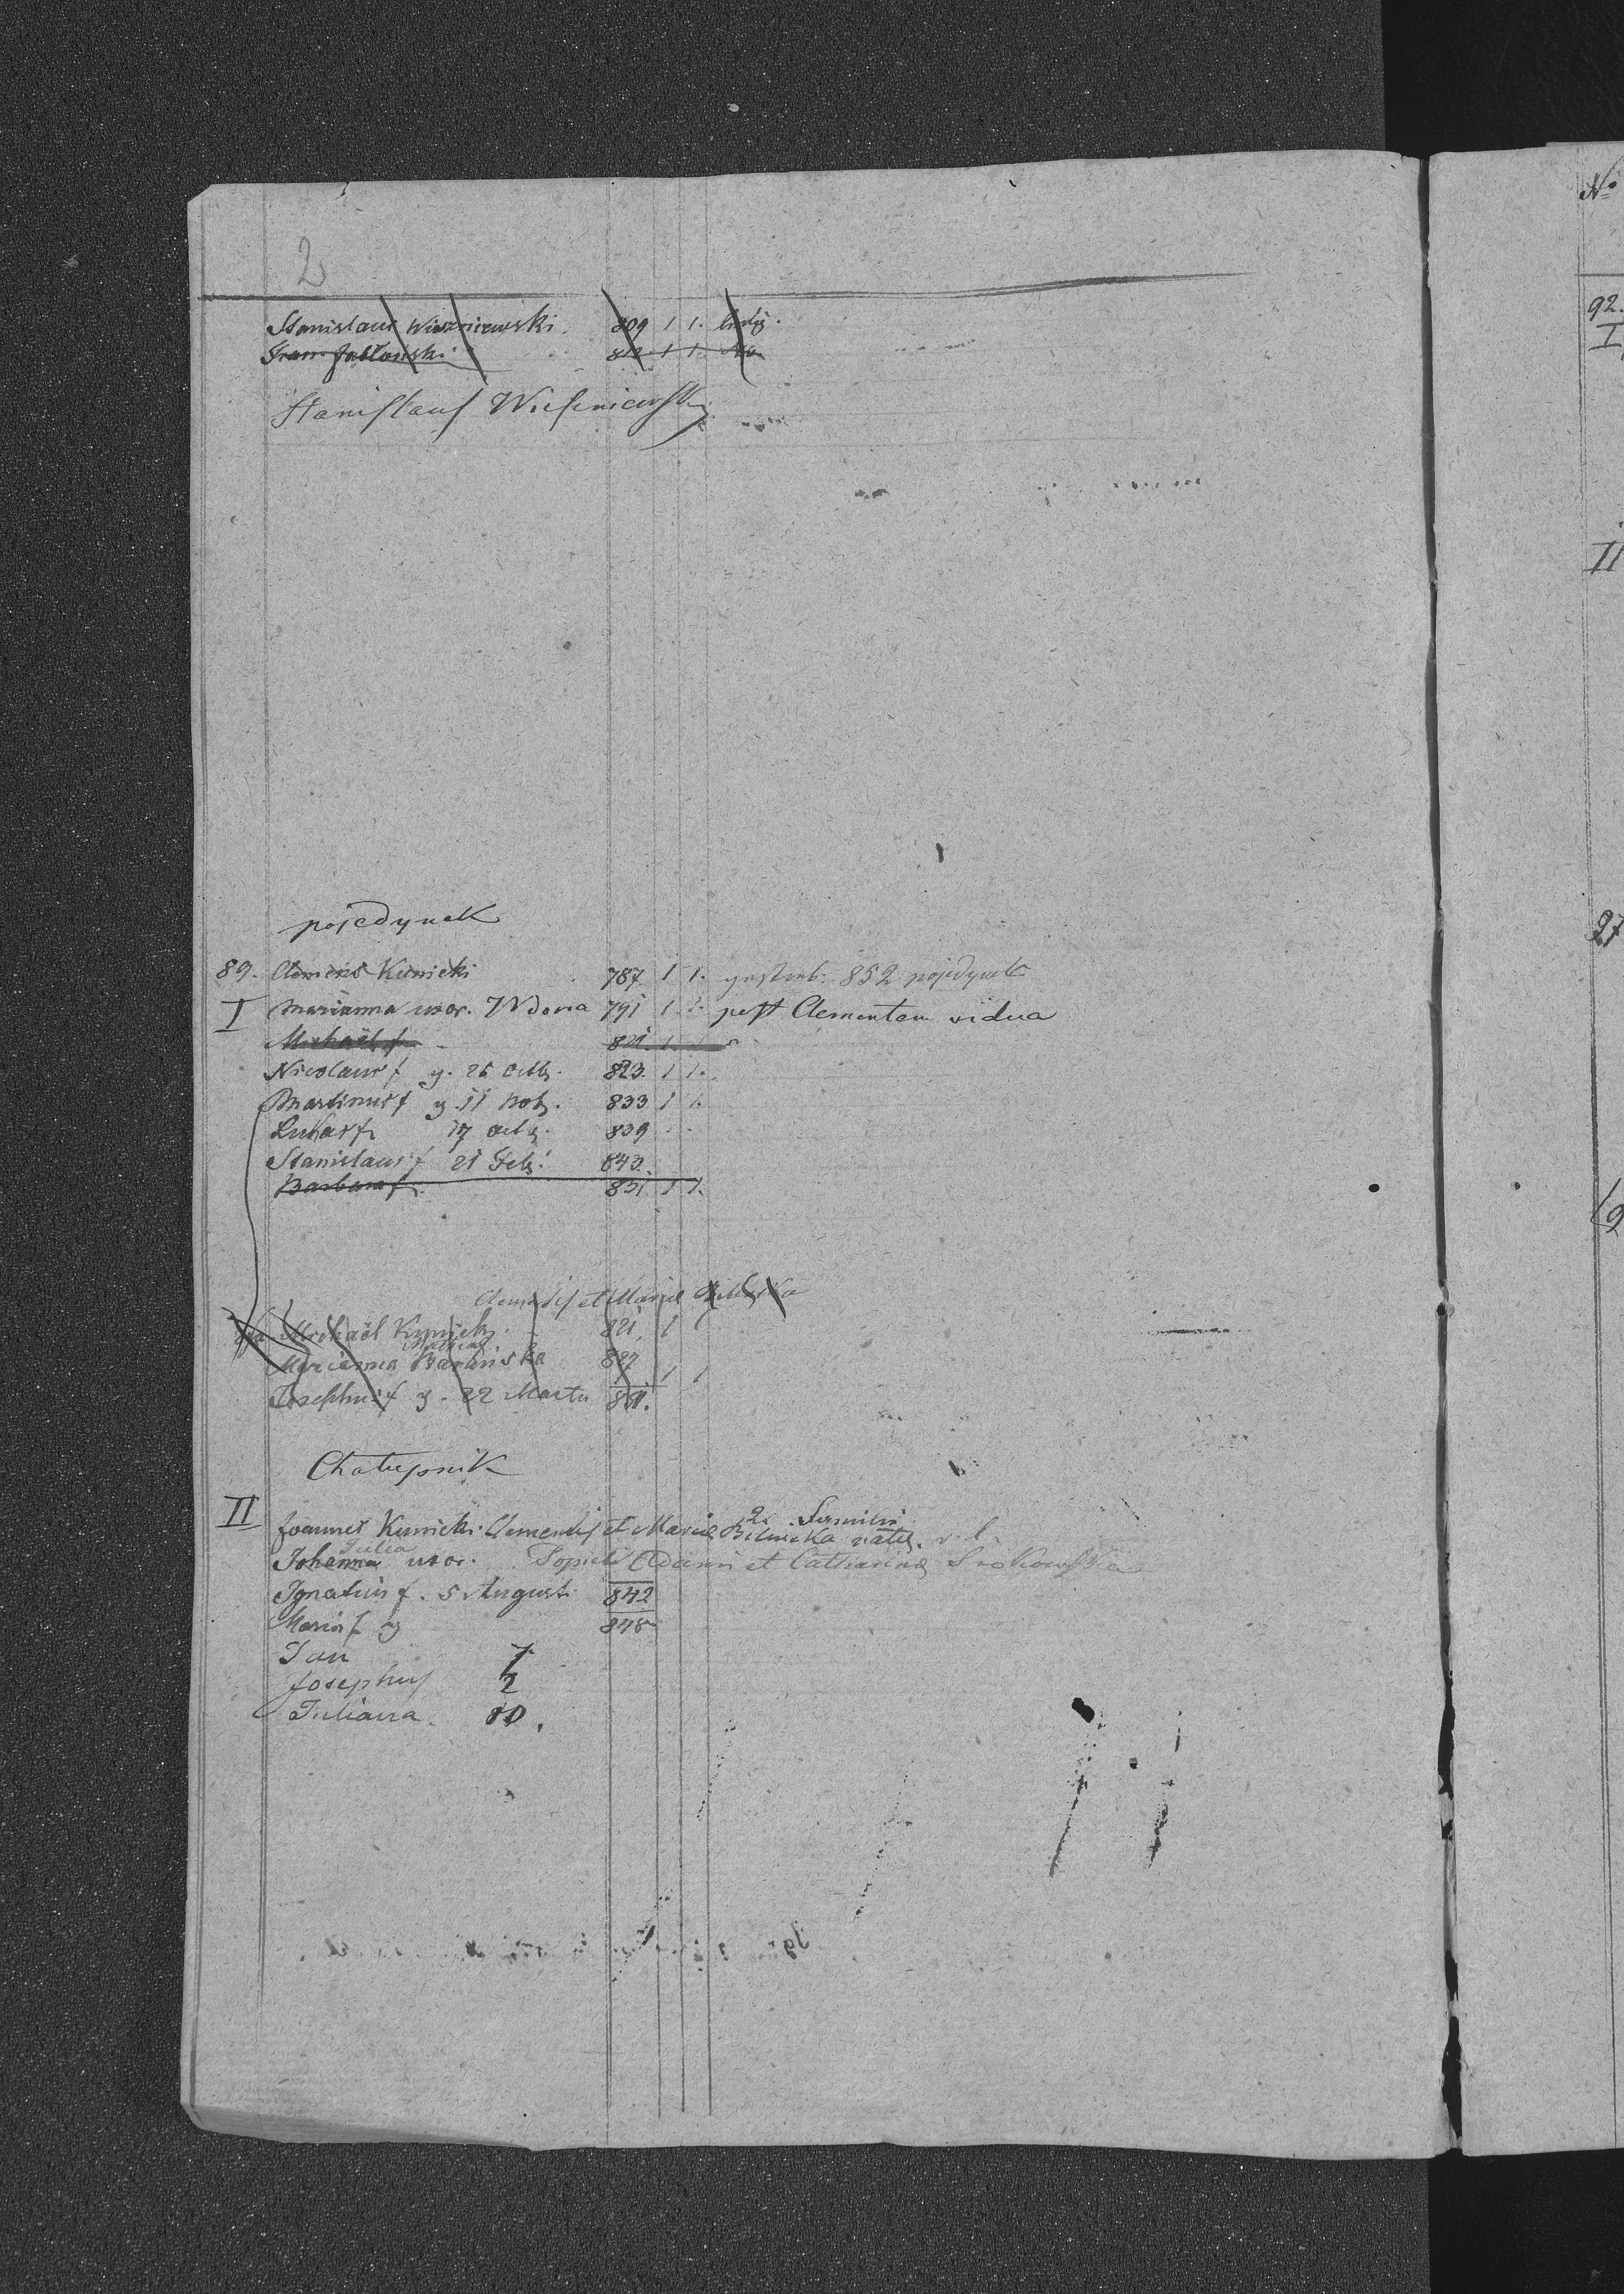 2
Stanislaus Wiszniewski. 809 1 1. ledig.
Fran Jabłoński 1 1
Stanislaus Wiszniewski
pojedynek
89. Clemens Kunicki 787 1 1. 852 pojedynek
I Marianna uxor. Wdowa 791 1. 1. post Clementem vidua
Michaël f 821. 1.
Nicolaus f g. 26 Octb. 823. 1 1.
Martinus f g. 11 Nob. 833 1 1.
Lukas f. 17 octb. 839
Stanislaus f 21 Feb. 843.
Barbara f. 831 1 1.
Clementis et Mariæ
Michaël Kunick 821. 1 1
Marianna Barańska 827 1 1
Josephus f g. 22 Martii
Chałupnik
II Joannes Kunicki Clementis et Mariæ natus.
Julia
Johanna uxor. Adami et Catharina
Ignatius f. 5 August. 842
Maria f g 848
Jan
Josephus 2
Juliana.
No
92.
I
II